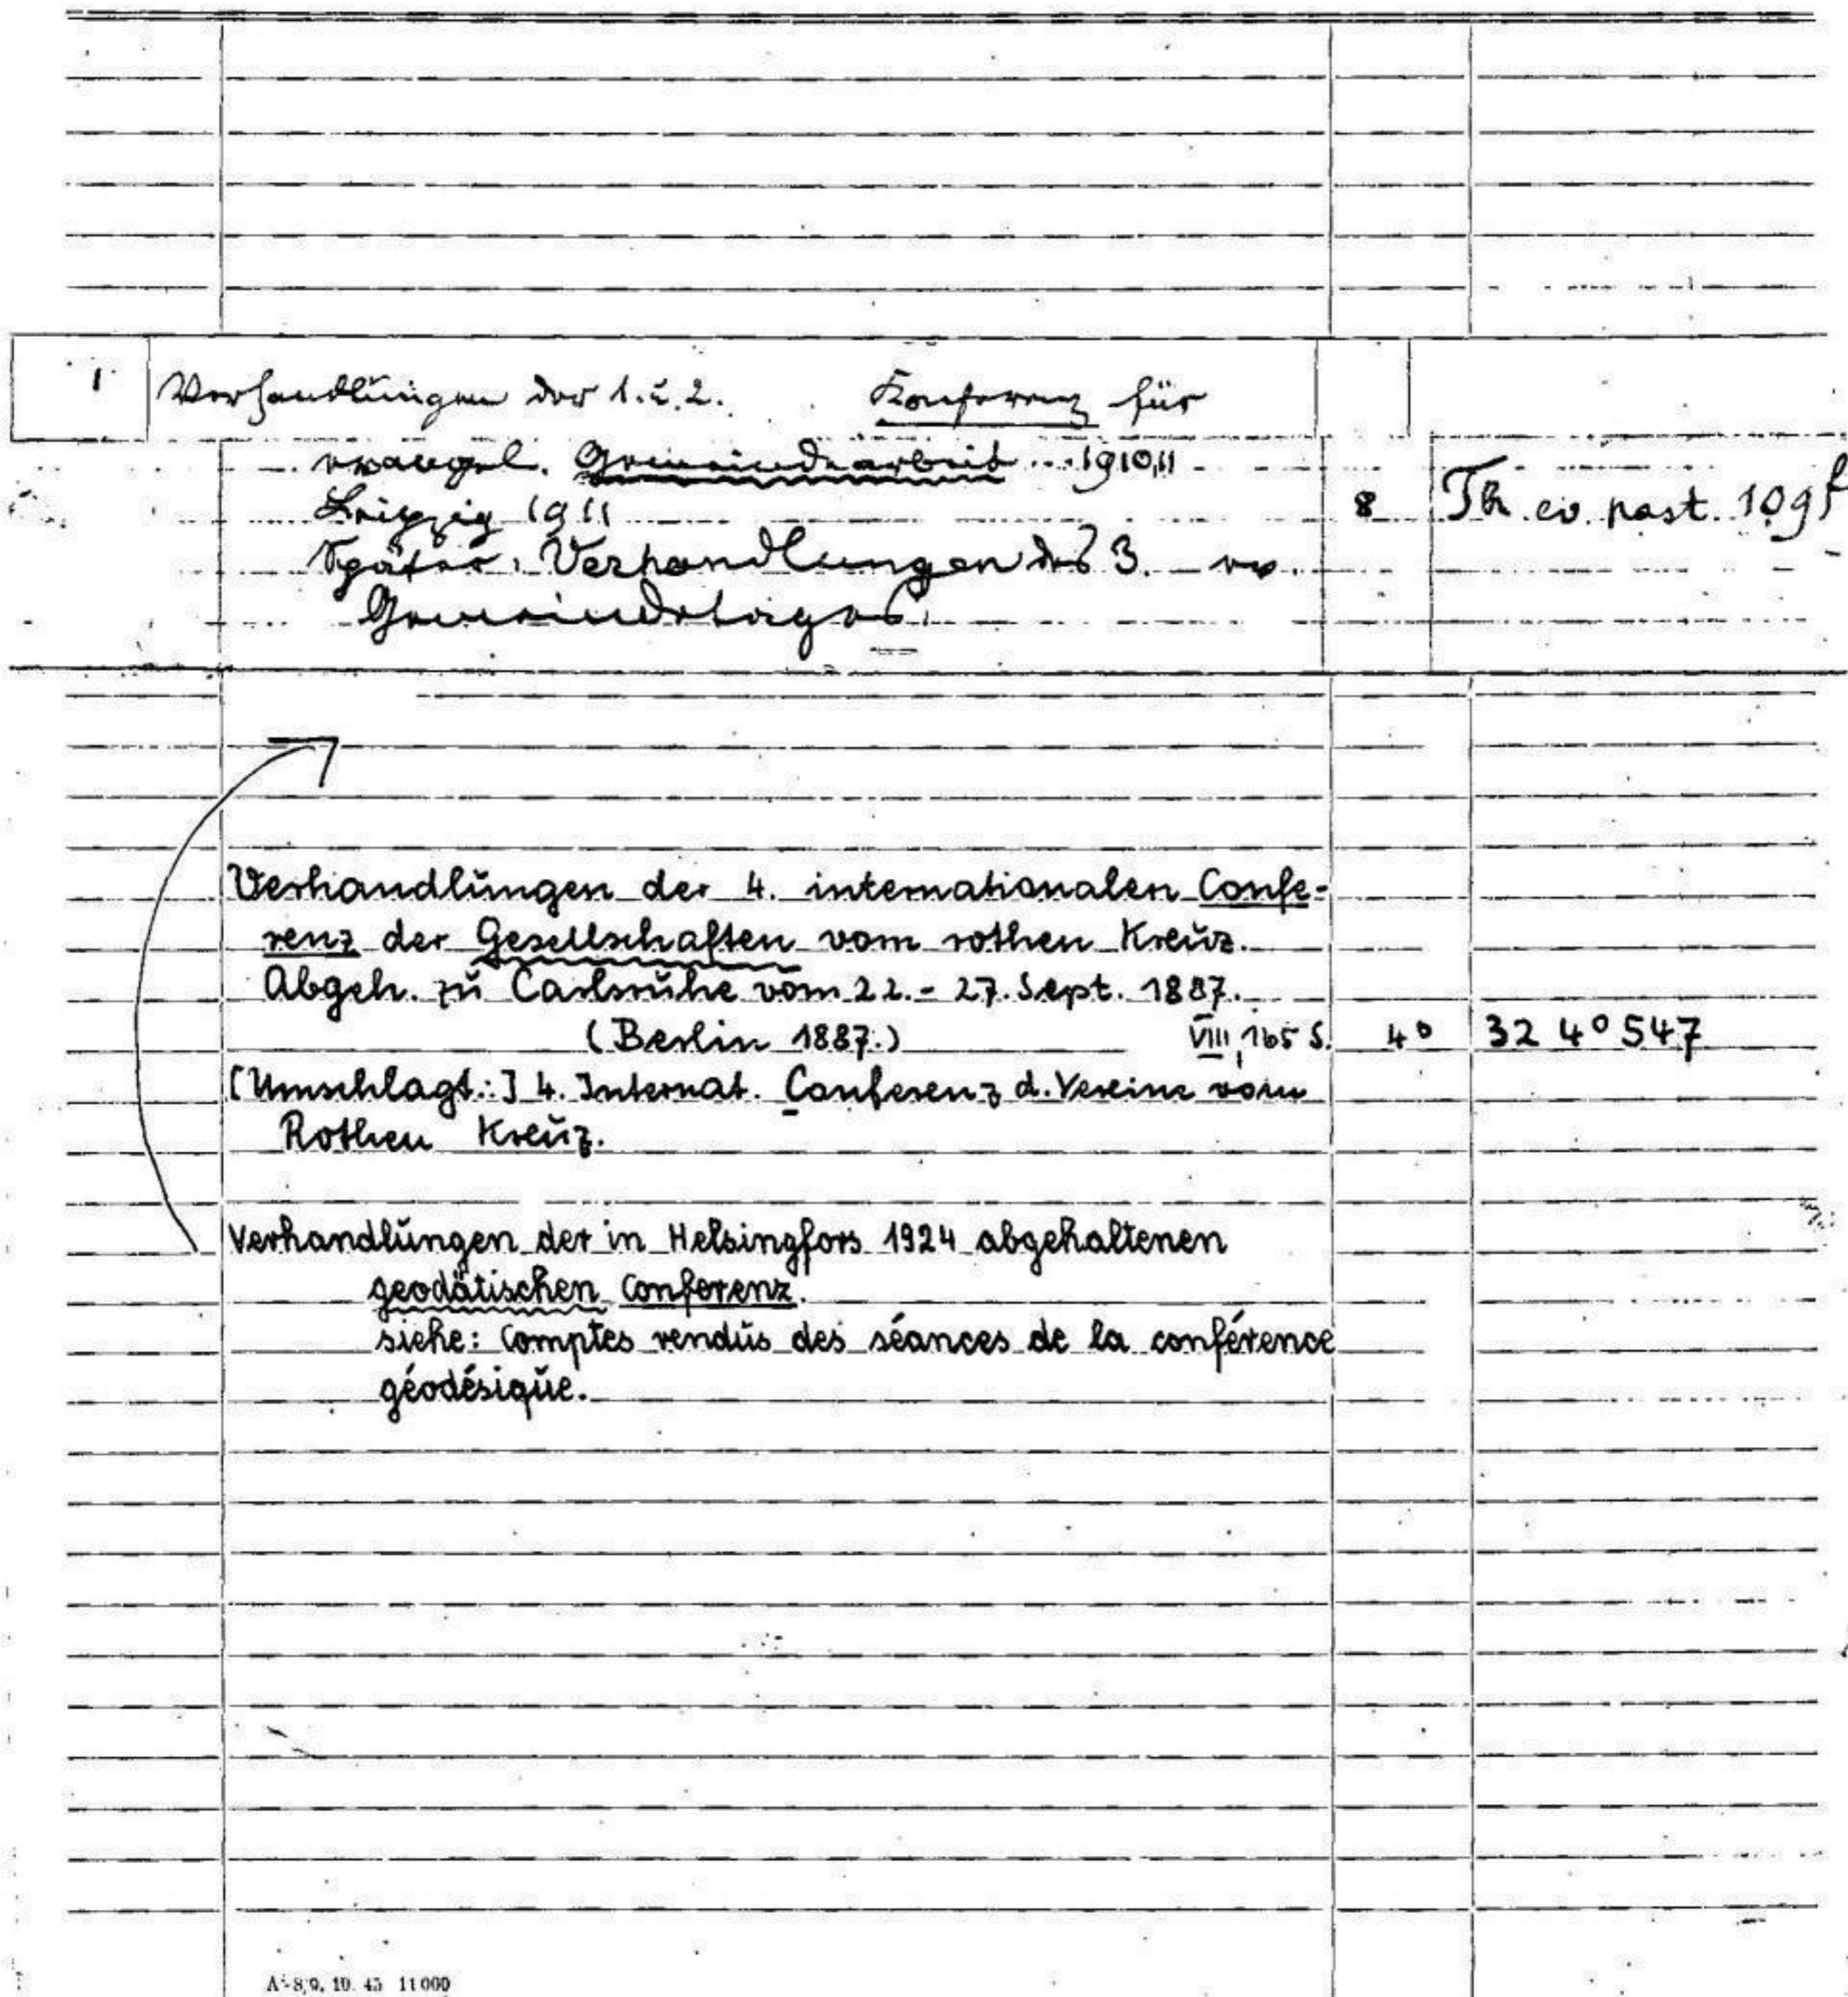 1 Verhandlungen der 1. u. 2. Konferenz für
evangel. Gemeindearbeit 1910,11
Leipzig 1911
8 Th. ev. past. 109f
Später: Verhandlungen des 3. ev.
Gemeindetages.
Verhandlungen der 4. internationalen Confe-
renz der Gesellschaften vom rothen Kreuz.
Abgeh. zu Carlsruhe vom 22.-27. Sept. 1887.
(Berlin 1887.) VIII, 165 S. 4° 32 4° 547
[Umschlagt.:] 4. Internat. Conferenz d. Vereine vom
Rothen Kreuz.
Verhandlungen der in Helsingfors 1924 abgehaltenen
geodätischen Conferenz.
siehe: Comptes rendus des séances de la conférence
géodésique.
A-8/9. 10. 45 11000